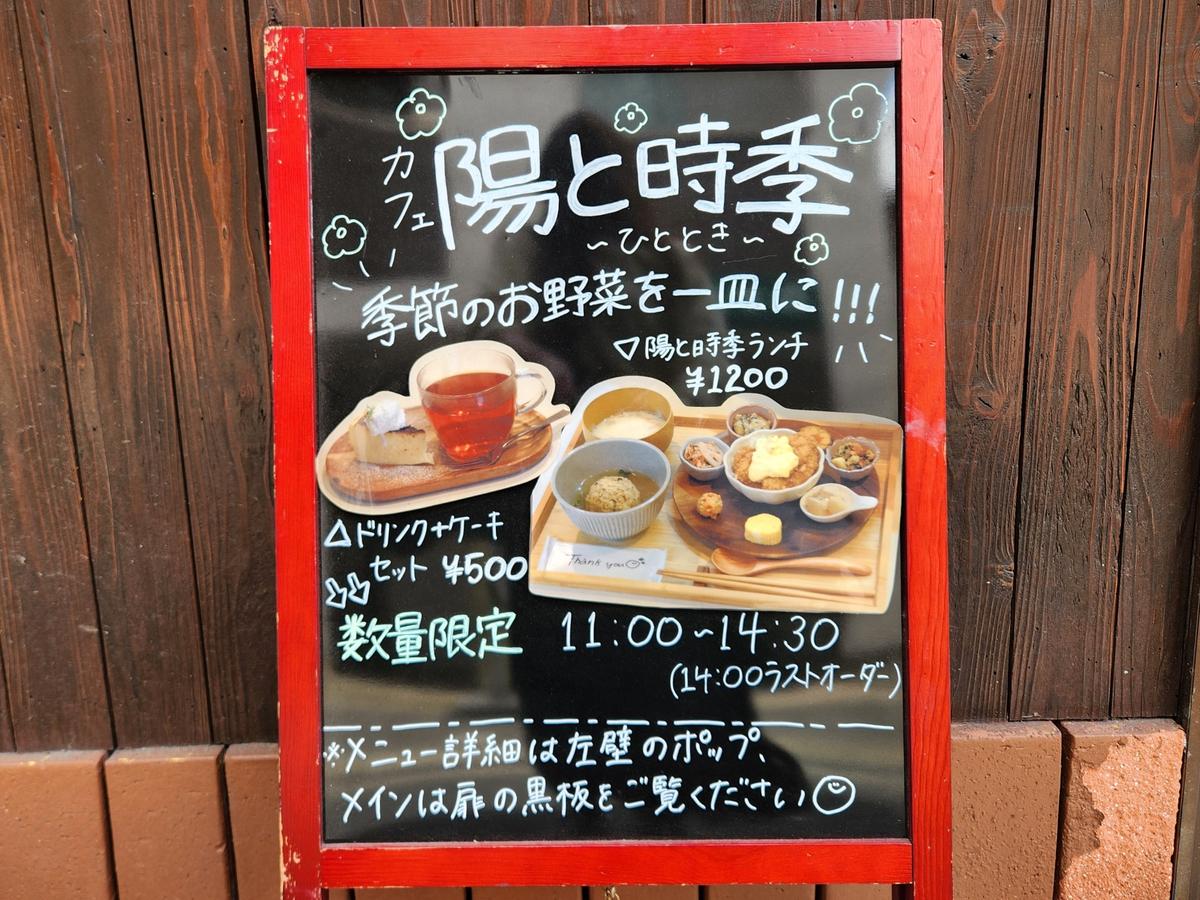 カフェ
陽と時季
~ひととき~
季節のお野菜を一皿に!!!
▽陽と時季ランチ
¥1200
Thank you
△ドリンク+ケーキ
セット ¥500
⇩⇩
数量限定
11:00~14:30
(14:00ラストオーダー)
※メニュー詳細は左壁のポップ、
メインは扉の黒板をご覧ください☺